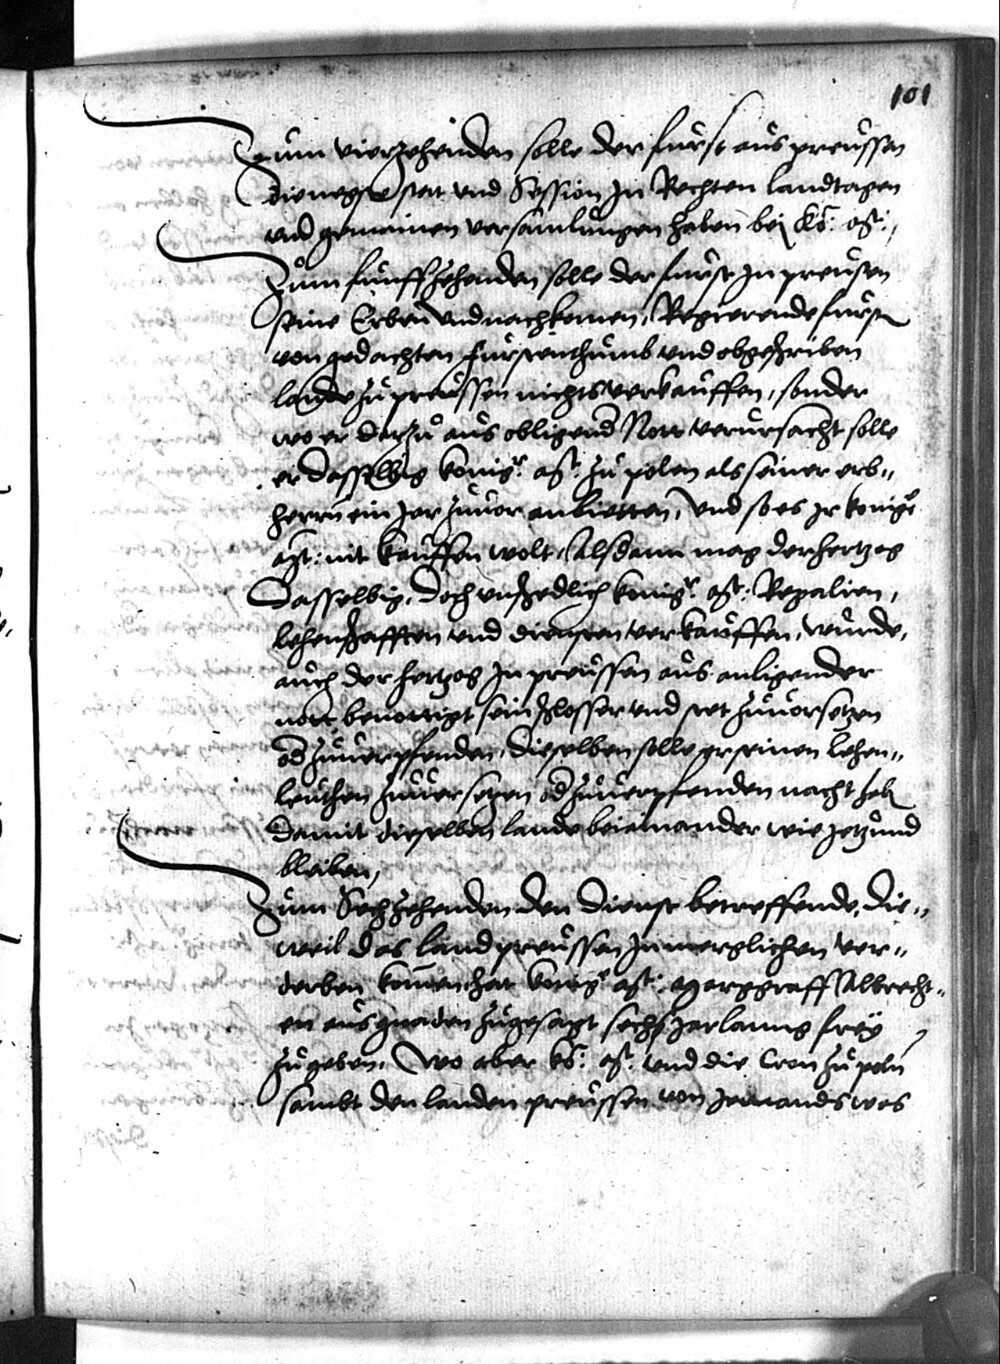 101
Zum vierzehenden solle der furst aus preussen
die negst stat und Session In Rechten landtagen
und gemainen versamlungen haben bei Kö: Mt:,
Zum funffzehenden solle der furst In preussen
seine Erben und nachkomen, Regierende furstn
von gedachten furstenthumb und obgeschriben
lande zu preussen nichts verkauffen, sonder
wo er darzu aus obligend Nott verursacht solle
er dasselbig konigr: Mt. zu polen als seiner erb„
herrn ein Jar zuvor anbietten, Und so es Ir konigr
Mt: nit kauffen wolt, Alsdann mag der hertzog
Dasselbig, doch unschedlich konigr: Mt: Regalien,
lehenschafften und diensten verkauffen, wurde,
auch der hertzog In preussen aus anligender
nott benottigt sein schlosser und stet zuvorsetzen
od zuverpfenden, dieselben solle er seinen lehen„
leuthen zuversetzen od zuverpfenden macht hab
damit dieselben lande beieinander wie jetzund
bleiben,
Zum Sechzehenden den dienst betreffende, die„
weil das land preussen In mergklichen ver„
derben komen hat konigr: Mt: Marggraff Albrecht„
en aus gnaden zugesagt sechs Jar lanng frey
zugeben. Wo aber kö: Mt. und die Cron zu poln
sambt den landen preussen von Jemands was